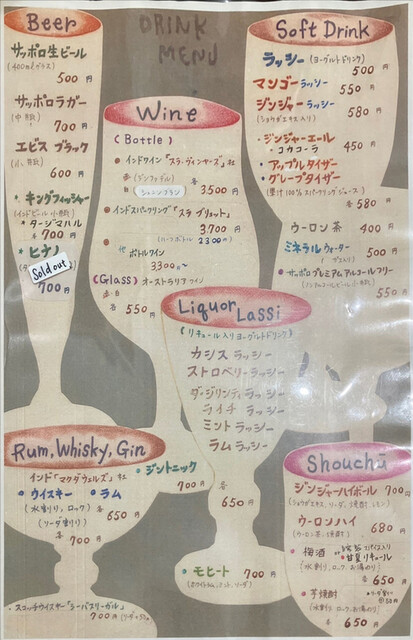 DRINK
MENU
Beer
サッポロ生ビール
(400mlグラス)
500円
サッポロラガー
(中瓶)
700円
エビス ブラック
(小瓶)
600円
・キングフィッシャー
(インドビール 小瓶)
・タージマハル
各 700円
・ヒナノ
Sold out
700円
Wine
(Bottle)
・インドワイン "スラ・ヴィンヤーズ"社
赤 (ジンファンデル)
白
シュナンブラン
各 3500円
・インドスパークリング "スラ ブリュット"
3,700円
(ハーフボトル 2300円)
・他 ボトルワイン
3,300円~
(Glass) オーストラリアワイン
赤・白
各 550円
Soft Drink
ラッシー (ヨーグルトドリンク)
500円
マンゴーラッシー
550円
ジンジャーラッシー
(ショウガエキス入り)
580円
・ジンジャーエール
・コカコーラ
450円
・アップルタイザー
・グレープタイザー
(果汁100%スパークリングジュース)
各 580円
ウーロン茶 400円
ミネラルウォーター
500円
・サッポロプレミアムアルコールフリー
(ノンアルコールビール 小瓶)
550円
Liquor Lassi
《リキュール入りヨーグルトドリンク》
カシス ラッシー
ストロベリーラッシー
ダージリンティラッシー
ライチ ラッシー
ミント ラッシー
ラム ラッシー
各 650円
・モヒート 700円
Rum, Whisky, Gin
インド「マクダウェルズ」社
・ウイスキー ・ラム
(水割り, ロック) 各 650円
(ソーダ割り)
各 700円
・ジントニック
700円
・スコッチウイスキー "シーバスリーガル"
700円
Shouchū
ジンジャーハイボール 700円
ウーロンハイ
(ウーロン茶, 焼酎)
680円
・梅酒
(水割り, ロック, お湯わり)
各 650円
・芋焼酎
(水割り, ロック, お湯わり)
各 650円